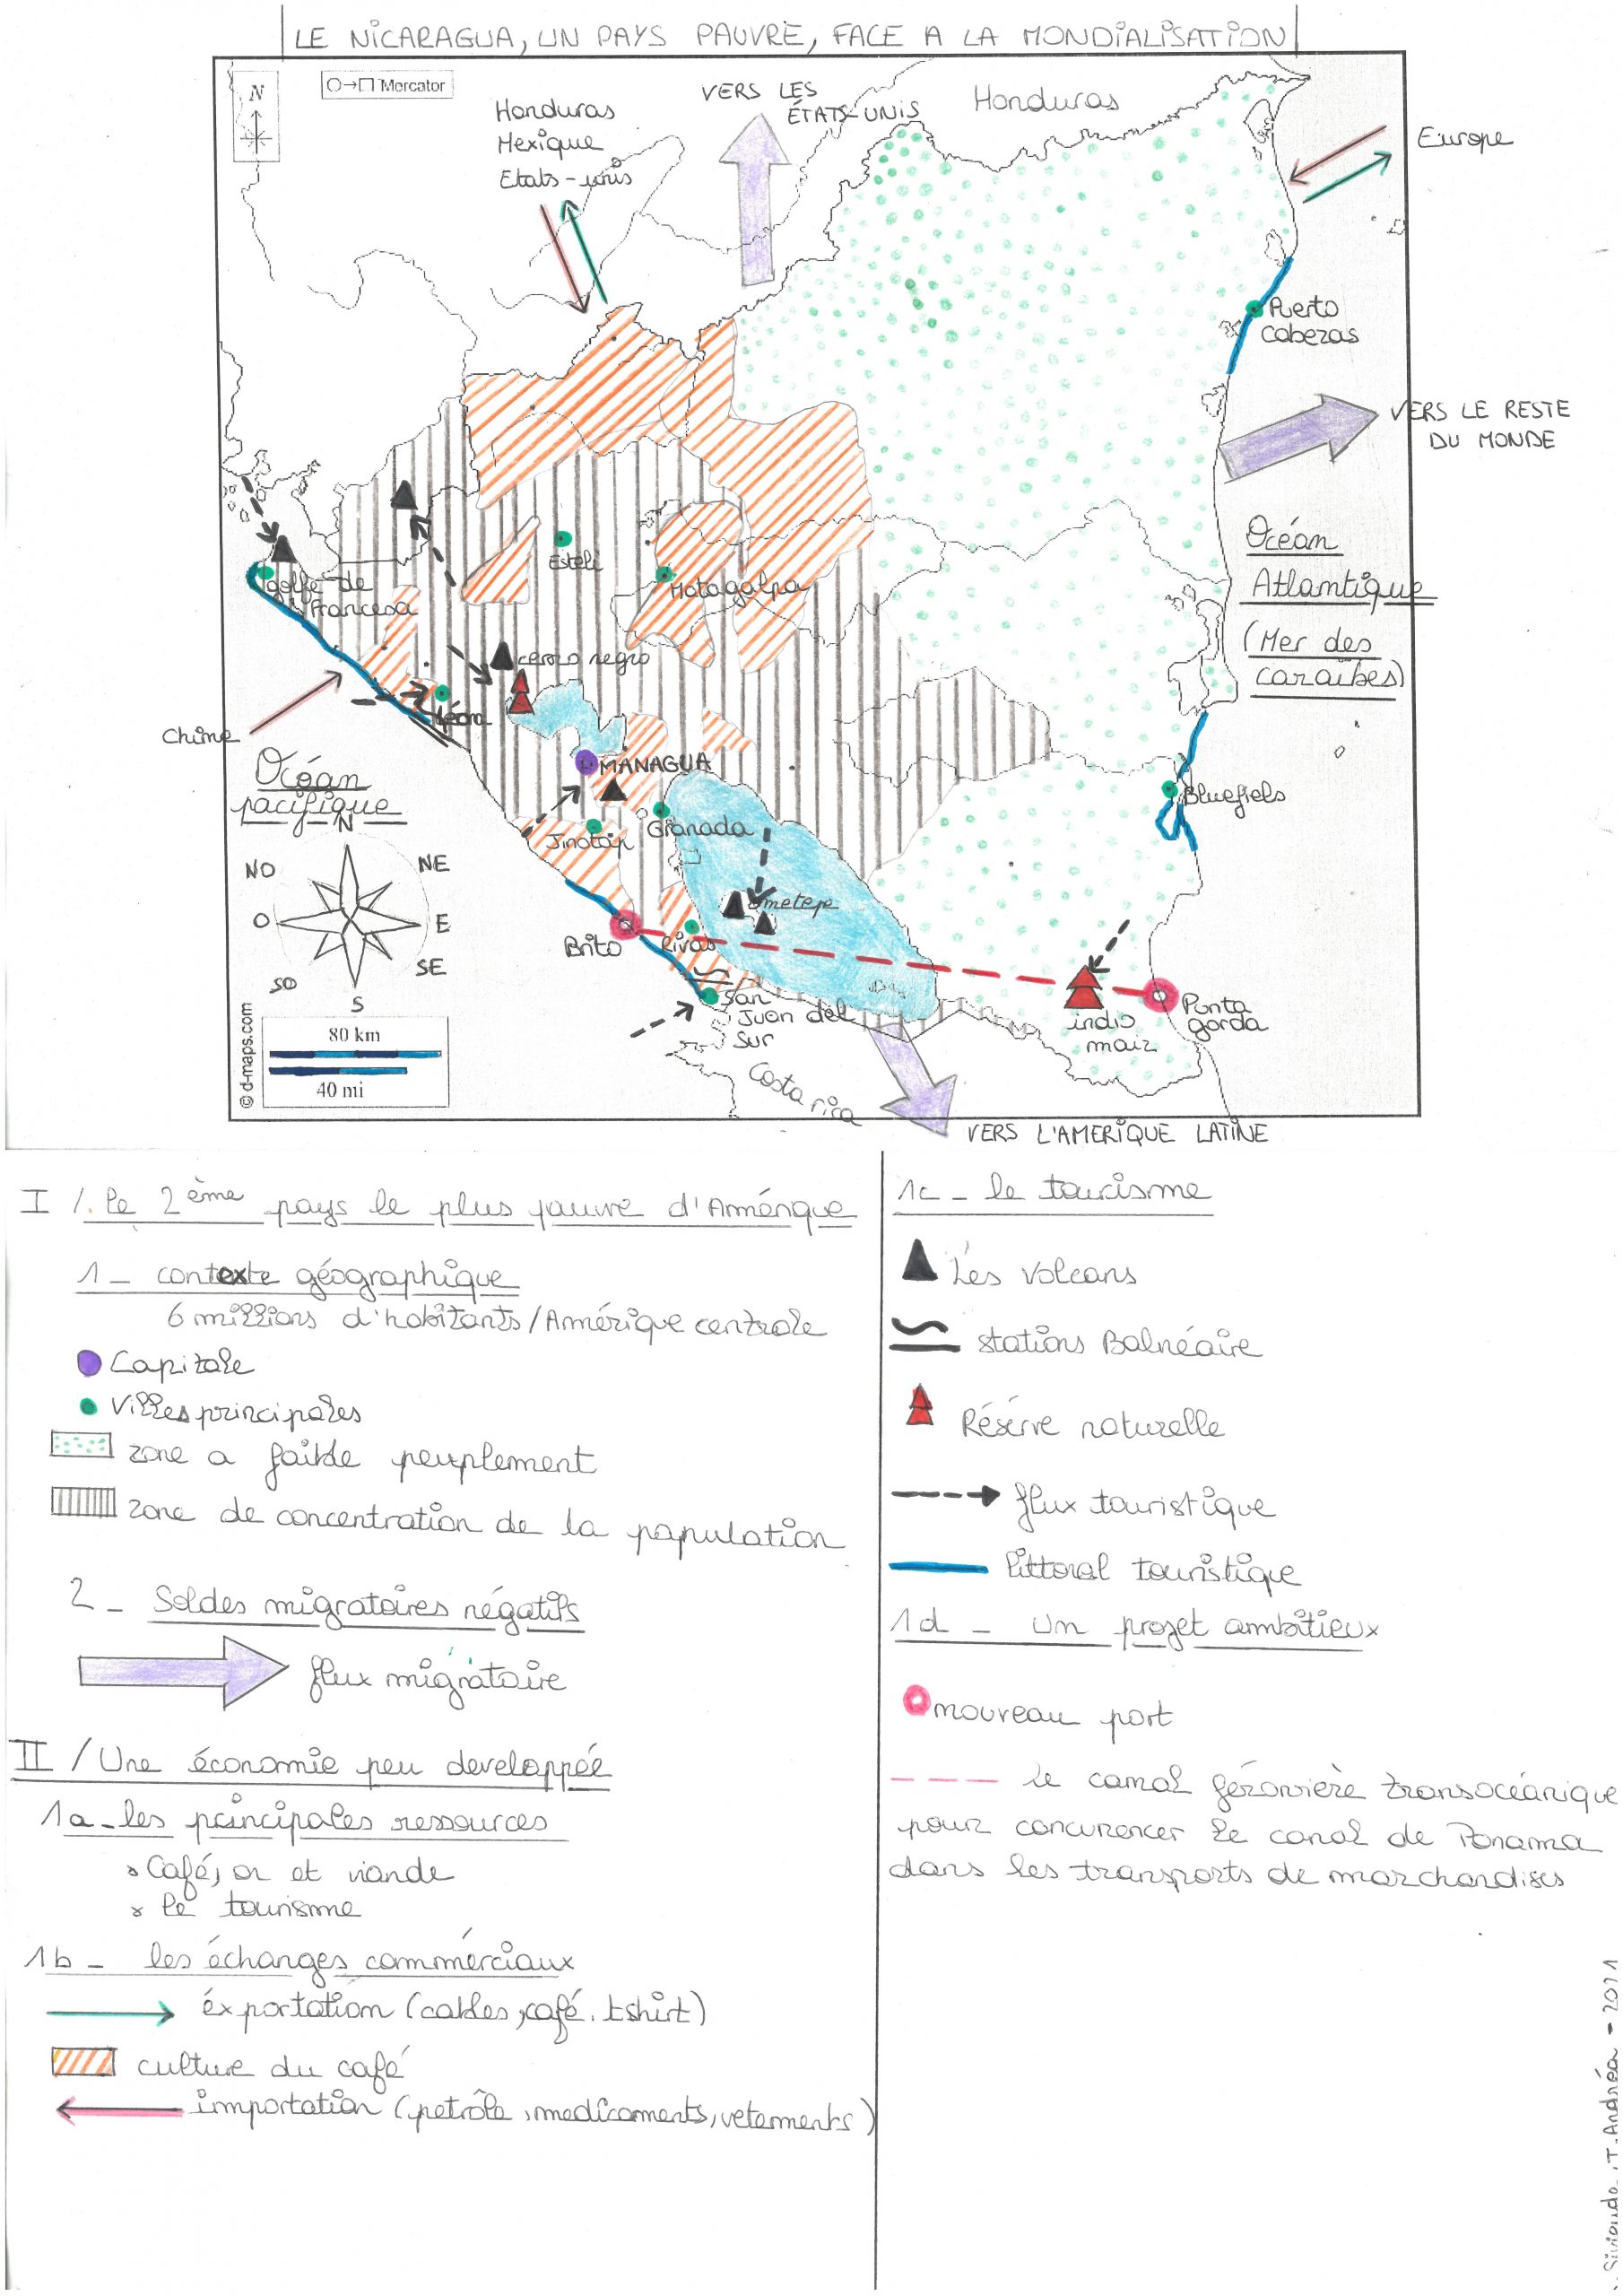 LE NICARAGUA, UN PAYS PAUVRE, FACE A LA MONDIALISATION
N
Mercator
Honduras
Mexique
Etats-unis
VERS LES
ÉTATS-UNIS
Honduras
Europe
Puerto
Cabezas
VERS LE RESTE
DU MONDE
Océan
Atlantique
(Mer des
caraïbes)
Estéli
Matagalpa
golfe de
francesa
cerro negro
Léon
Chine
Océan
pacifique
MANAGUA
Granada
Jinotep
Bluefiels
ometepe
Brito
Rivas
San
Juan del
Sur
indio
maiz
Punta
gorda
Costa rica
VERS L'AMERIQUE LATINE
N
NO
NE
O
E
SO
SE
S
80 km
40 mi
© d-maps.com
I /. Le 2ème pays le plus pauvre d'Amérique
1 - contexte géographique
6 millions d'habitants/Amérique centrale
Capitale
Villes principales
zone a faible peuplement
zone de concentration de la population
2 - Soldes migratoires négatifs
flux migratoire
II / Une économie peu developpée
1a - les principales ressources
Café, or et viande
le tourisme
1b - les échanges commérciaux
éxportation (cables, café. tshirt)
culture du café
importation (petrôle, medicaments, vetements)
1c - le tourisme
Lés volcans
stations Balnéaire
Résérve naturelle
flux touristique
littoral touristique
1d - Un projet ambitieux
nouveau port
Le canal férovière transocéanique
pour concurencer le canal de Panama
dans les transports de marchandises
T. Andréa - 2021